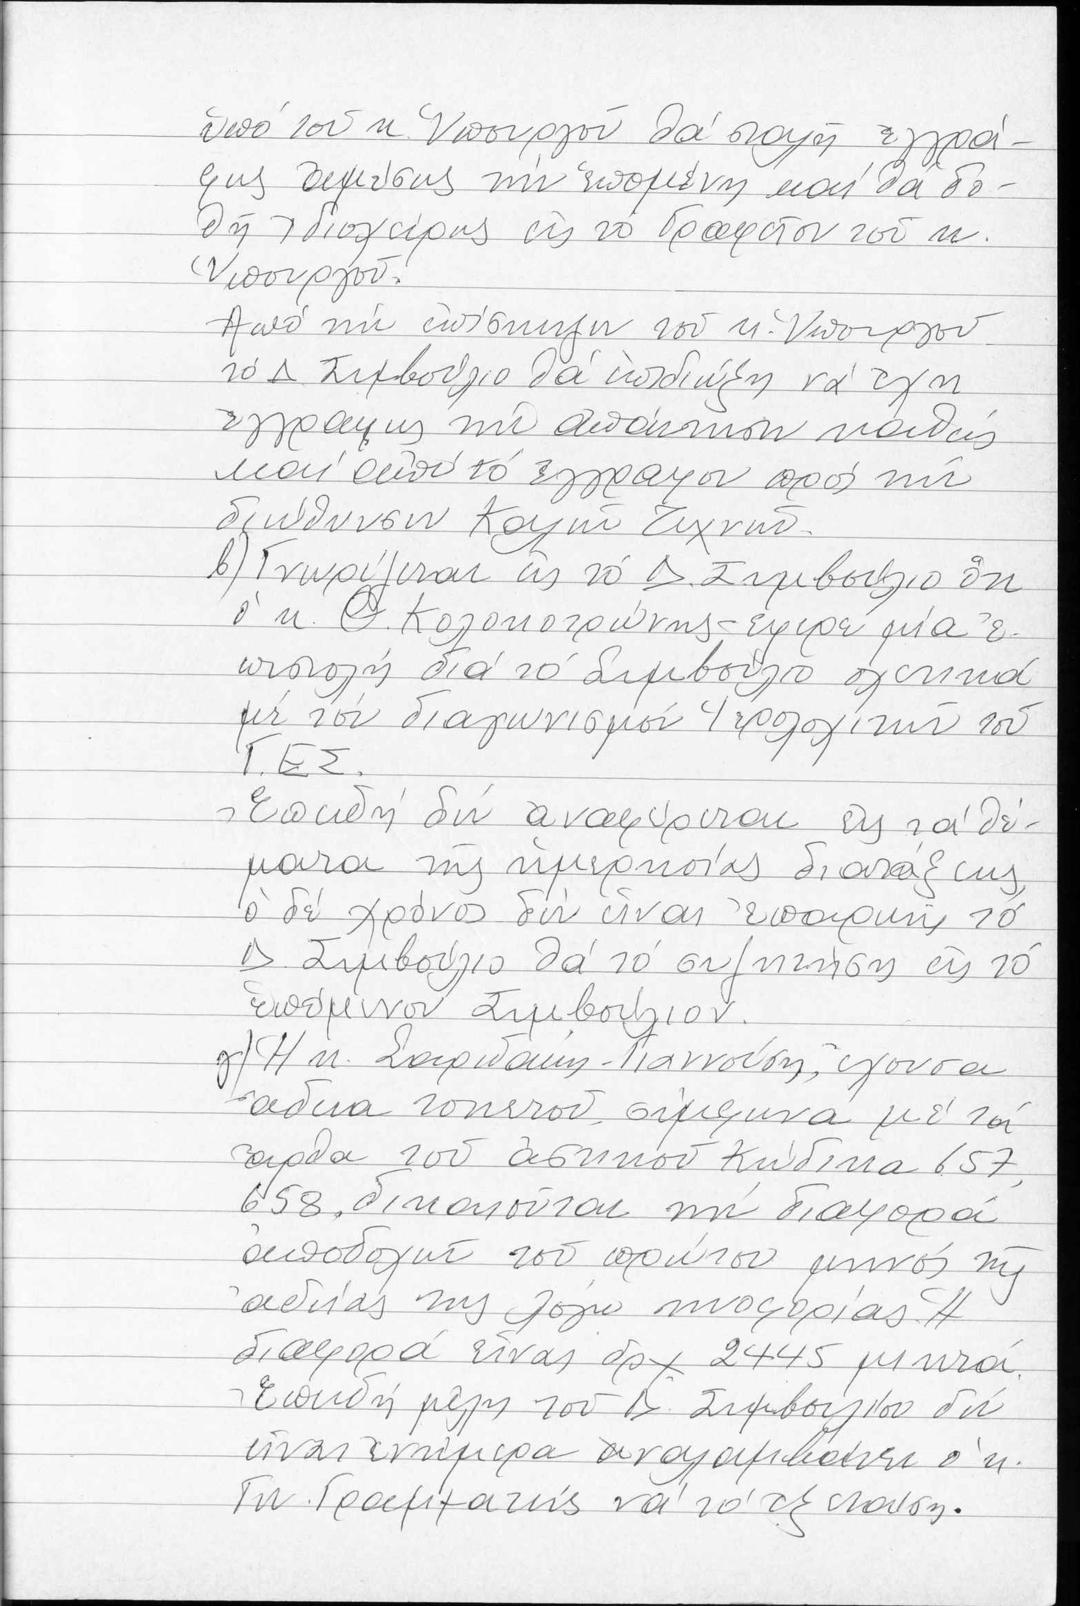 ὑπό τοῦ κ. Ὑπουργοῦ θά σταλῇ ἐγγρά-
φως ἀμέσως τήν ἑπομένη καί θά δο-
θῇ ἰδιοχείρως εἰς τό Γραφεῖον τοῦ κ.
Ὑπουργοῦ.
Ἀπό τήν ἐπίσκεψιν τοῦ κ. Ὑπουργοῦ
τό Δ. Συμβούλιο θά ἐπιδιώξη νά ἔχη
ἐγγράφως τήν ἀπάντησιν καθώς
καί ἀπό τό ἔγγραφον πρός τήν
διεύθυνσιν Καλῶν Τεχνῶν.
β) Γνωρίζεται εἰς τό Δ. Συμβούλιο ὅτι
ὁ κ. Θ. Κολοκοτρώνης ἔφερε μία ἐ-
πιστολή διά τό Συμβούλιο σχετικά
μέ τόν διαγωνισμόν
τοῦ
Γ.Ε.Σ.
Ἐπειδή δέν ἀναφέρεται εἰς τά θέ-
ματα τῆς ἡμερησίας διατάξεως,
ὁ δέ χρόνος δέν εἶναι ἐπαρκής τό
Δ. Συμβούλιο θά τό συζητήση εἰς τό
ἑπόμενον Συμβούλιον.
γ) Ἡ κ. Σαριδάκη-Γιαννούση, ἔχουσα
ἄδεια τοκετοῦ, σύμφωνα μέ τά
ἄρθα τοῦ ἀστικοῦ Κώδικα 657,
658, δικαιοῦται τήν διαφορά
ἀποδοχῶν τοῦ πρώτου μηνός τῆς
ἀδείας της λόγω κυοφορίας. Ἡ
διαφορά εἶναι δρχ 2445 μικτά.
Ἐπειδή μέλη τοῦ Δ. Συμβουλίου δέν
εἶναι ἐνήμερα ἀναλαμβάνει ὁ κ.
Γεν. Γραμματεύς νά τό ἐξετάση.